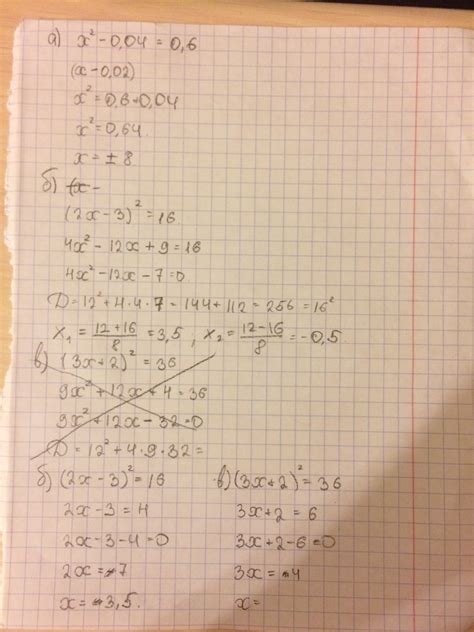 а) x² - 0,04 = 0,6
(x - 0,02)
x² = 0,6 + 0,04
x² = 0,64.
x = ± 8
б) (x -
(2x - 3)² = 16
4x² - 12x + 9 = 16
4x² - 12x - 7 = 0
D = 12² + 4·4·7 = 144 + 112 = 256 = 16²
x₁ = (12+16)/8 = 3,5 , x₂ = (12-16)/8 = -0,5.
в) (3x + 2)² = 36
9x² + 12x + 4 = 36
9x² + 12x - 32 = 0
D = 12² + 4·9·32 =
б) (2x - 3)² = 16
2x - 3 = 4
2x - 3 - 4 = 0
2x = 7
x = 3,5.
в) (3x + 2)² = 36
3x + 2 = 6
3x + 2 - 6 = 0
3x = 4
x =